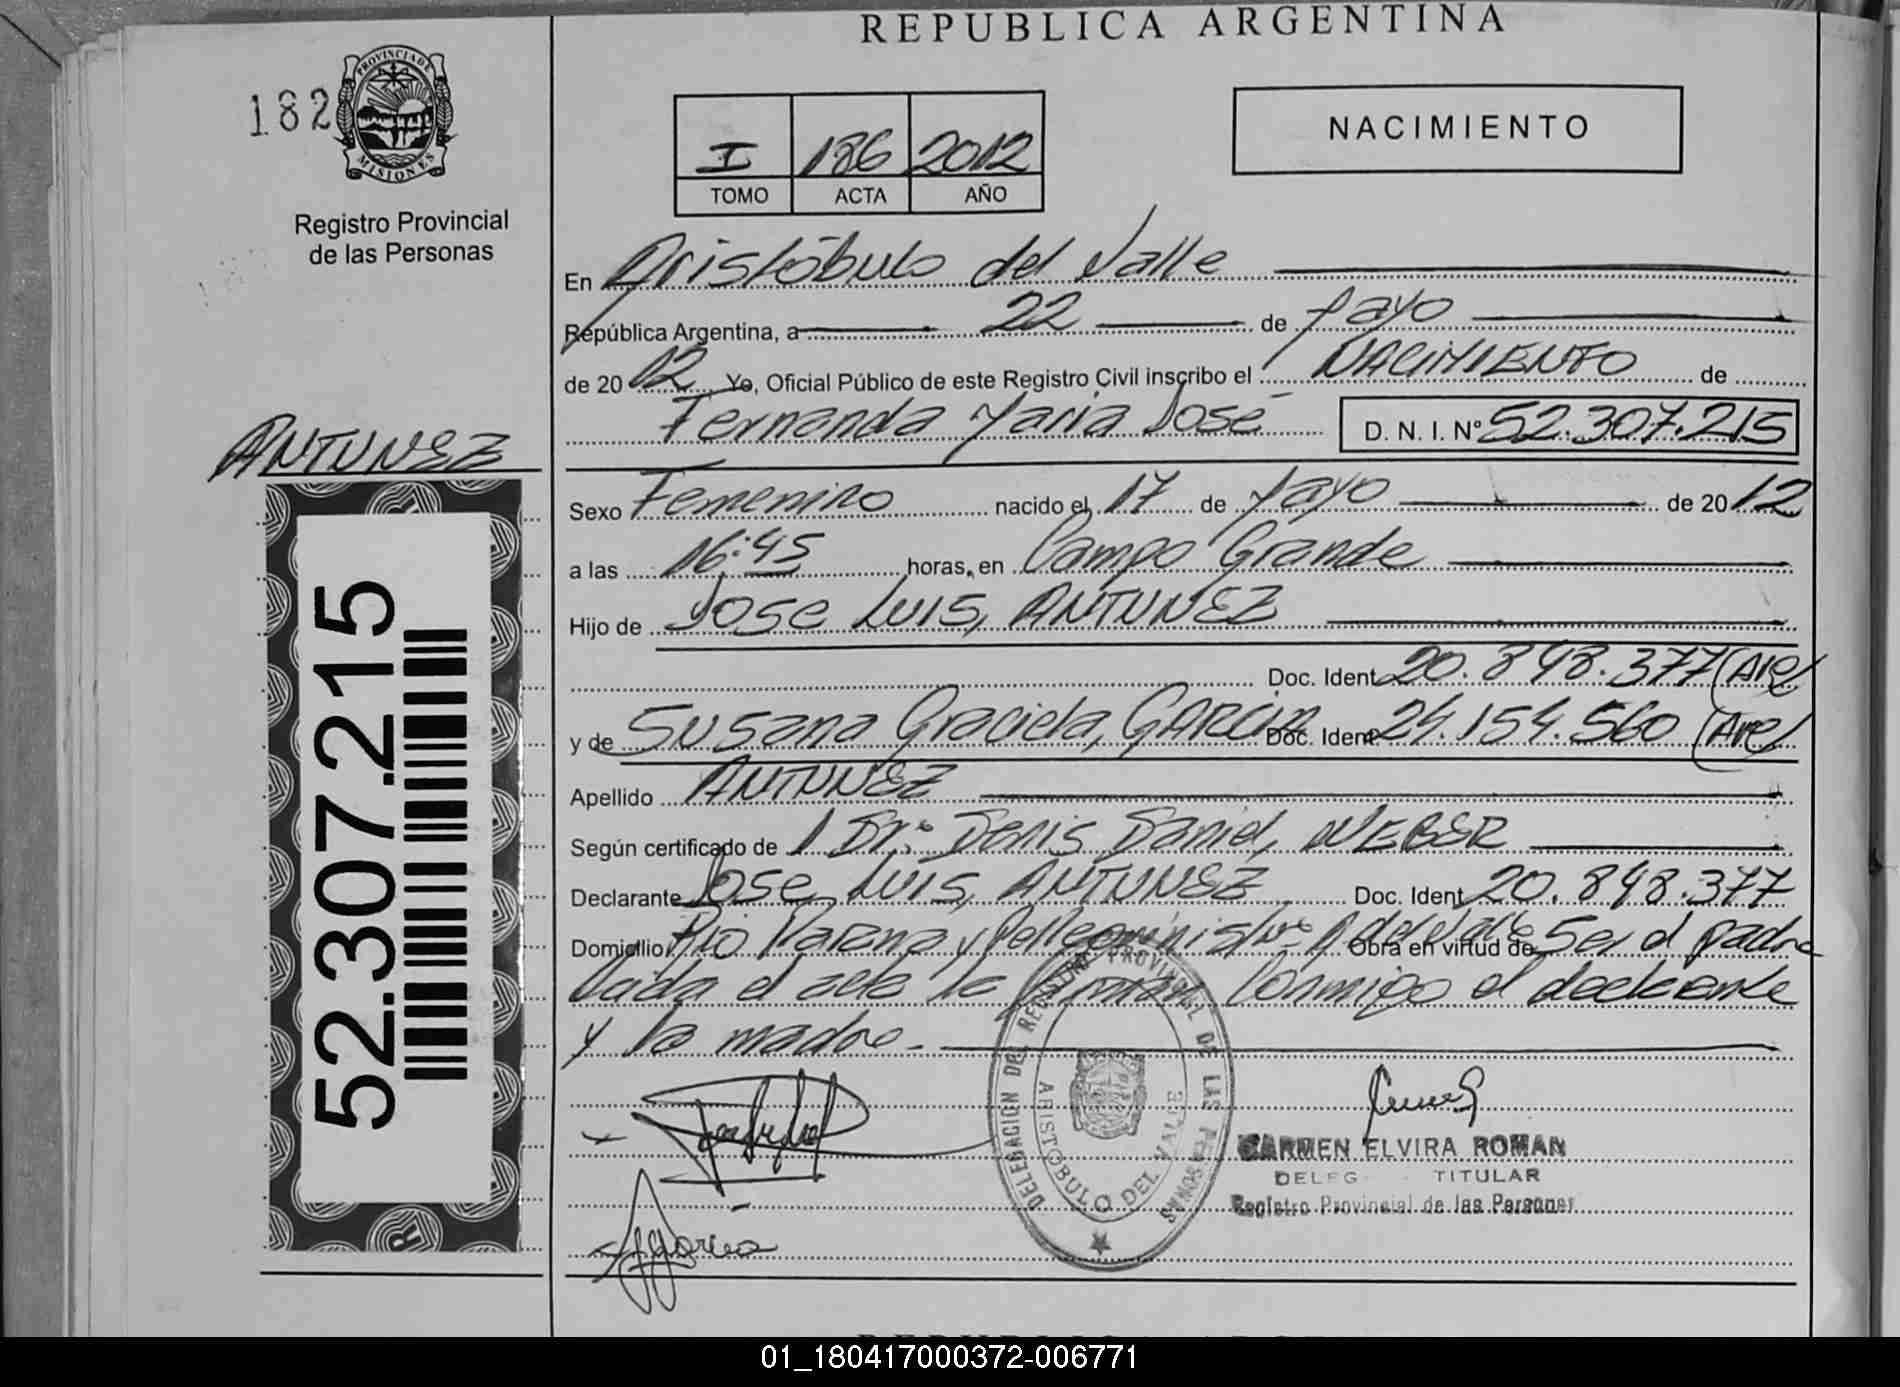 REPUBLICA ARGENTINA
182
PROVINCIA DE
MISIONES
Registro Provincial
de las Personas
I 186 2012
TOMO ACTA AÑO
NACIMIENTO
En Aristóbulo del Valle
República Argentina, a 22 de Mayo
de 2012 Yo, Oficial Público de este Registro Civil inscribo el NACIMIENTO de
Fernanda Maria José D. N. I. Nº 52.307.215
ANTUNEZ
Sexo Femenino nacido el 17 de Mayo de 2012
a las 16:45 horas, en Campo Grande
Hijo de Jose Luis, ANTUNEZ
Doc. Ident. 20.848.377 (Arg)
y de Susana Graciela, GARCIA Doc. Ident. 24.154.560 (Arg)
Apellido ANTUNEZ
Según certificado de Dr: Denis Daniel, WEBER
Declarante Jose Luis, ANTUNEZ Doc. Ident. 20.848.377
Domicilio Rio Parana y Pellegrini A. del Valle Obra en virtud de Ser el padre
Leida el acta la firman Conmigo el declarante
y la madre.
52.307.215
DELEGACION DEL REGISTRO PROVINCIAL DE LAS PERSONAS
ARISTOBULO DEL VALLE
CARMEN ELVIRA ROMAN
DELEG TITULAR
Registro Provincial de las Personas
01_180417000372-006771